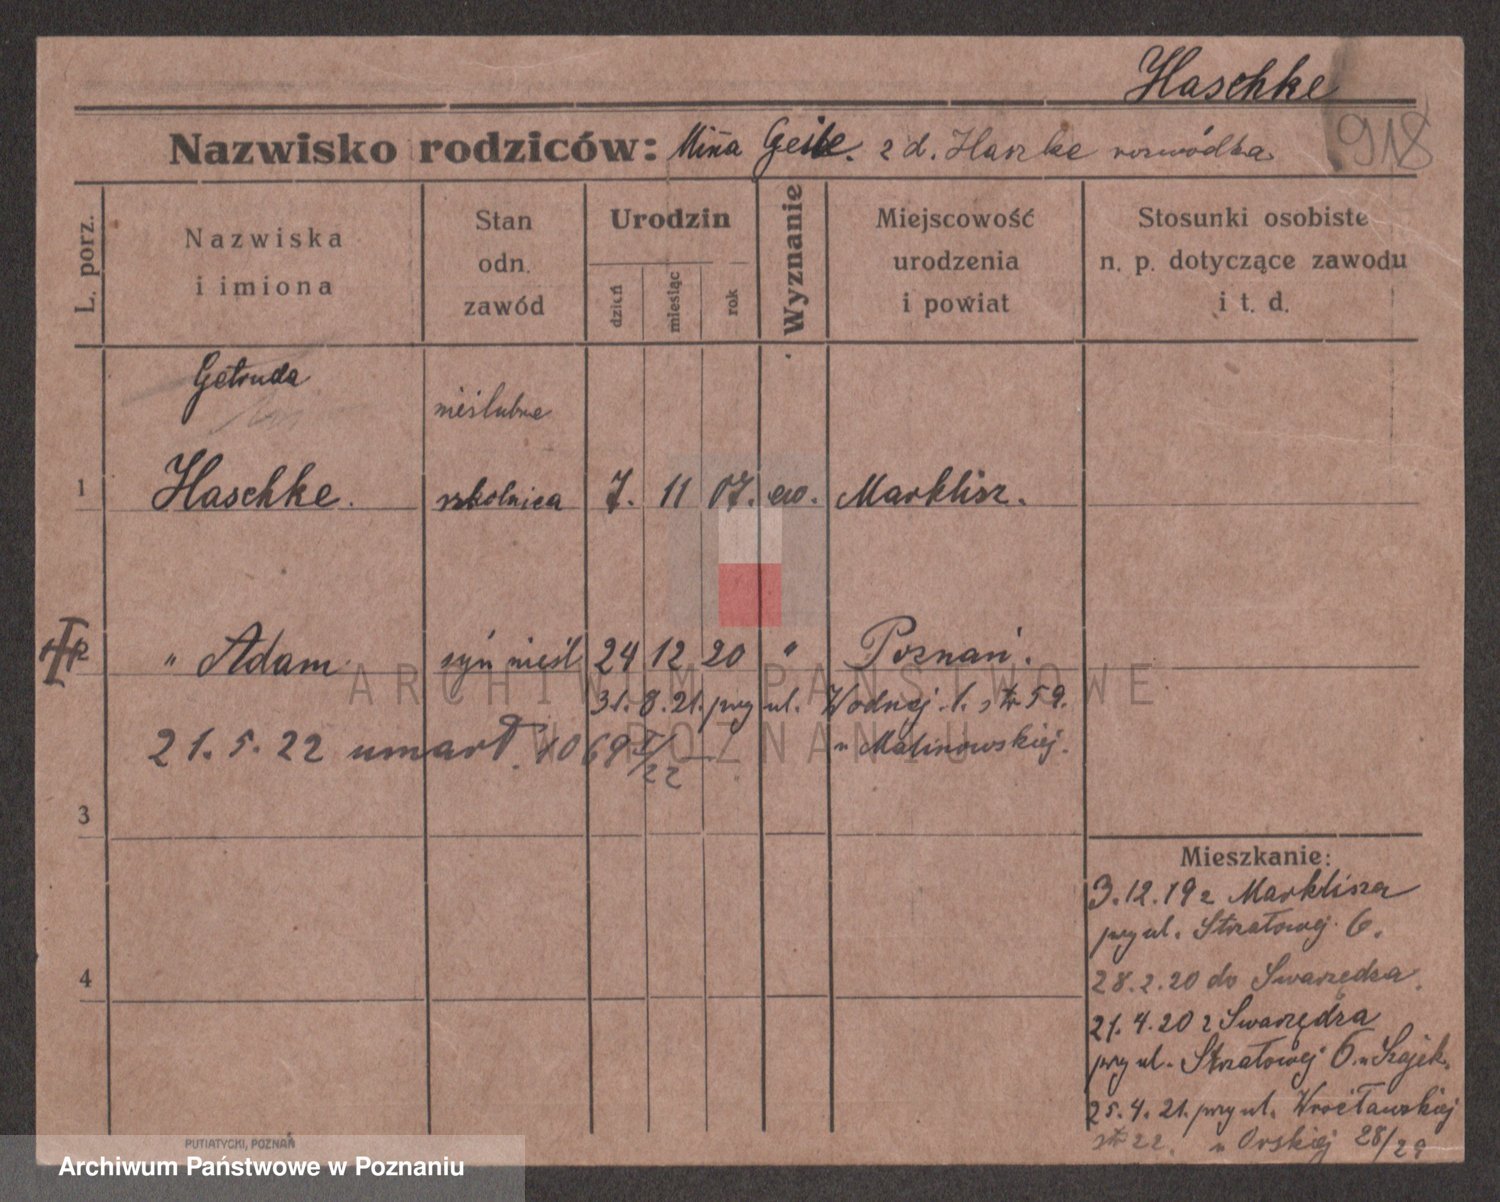 Haschke
Nazwisko rodziców: Minna z d. Haszke rozwódka
918
L. porz.
Nazwiska
i imiona
Stan
odn.
zawód
Urodzin
dzień
miesiąc
rok
Wyznanie
Miejscowość
urodzenia
i powiat
Stosunki osobiste
n. p. dotyczące zawodu
i t. d.
Getruda nieślubne
1 Haschke. szkolnica 7. 11 07. ew. Marklisz.
2 " Adam syn nieśl 24 12 20 " Poznań.
31. 8. 21. przy ul. Wodnej 1. str 59.
21. 5. 22 umarł. 1069 V/22 u Malinowskiej.
3
Mieszkanie:
3. 12. 19 z Marklisza
przy ul. Strzałowej 6.
4
28. 2. 20 do Swarzędza.
21. 4. 20 z Swarzędza
przy ul. Strzałowej 6. u Szajek.
25. 4. 21. przy ul. Wrocławskiej
str 22. u Orskiej 28/29
PUTIATYCKI, POZNAŃ
ARCHIWUM PAŃSTWOWE
W POZNANIU
Archiwum Państwowe w Poznaniu